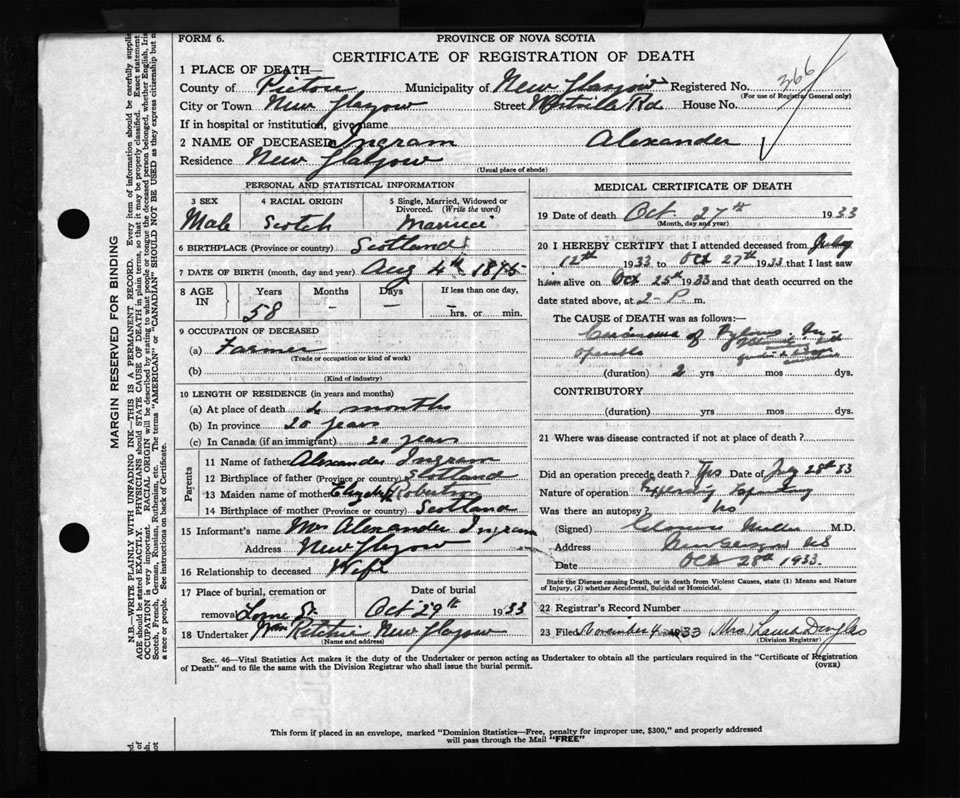 FORM 6.
PROVINCE OF NOVA SCOTIA
CERTIFICATE OF REGISTRATION OF DEATH
1 PLACE OF DEATH—
County of Pictou Municipality of New Glasgow Registered No. 366
(For use of Registrar General only)
City or Town New Glasgow Street Westville Rd House No.
If in hospital or institution, give name
2 NAME OF DECEASED Ingram Alexander
Residence New Glasgow
(Usual place of abode)
PERSONAL AND STATISTICAL INFORMATION
3 SEX 4 RACIAL ORIGIN 5 Single, Married, Widowed or
Divorced. (Write the word)
Male Scotch Married
6 BIRTHPLACE (Province or country) Scotland
7 DATE OF BIRTH (month, day and year) Aug 4th 1875
8 AGE IN Years Months Days If less than one day,
58 — — —hrs. or min.
9 OCCUPATION OF DECEASED
(a) Farmer
(Trade or occupation or kind of work)
(b)
(Kind of industry)
10 LENGTH OF RESIDENCE (in years and months)
(a) At place of death months
(b) In province 20 years
(c) In Canada (if an immigrant) 20 years
Parents
11 Name of father Alexander Ingram
12 Birthplace of father (Province or country) Scotland
13 Maiden name of mother Robertson
14 Birthplace of mother (Province or country) Scotland
15 Informant's name Mrs Alexander Ingram
Address New Glasgow
16 Relationship to deceased Wife
17 Place of burial, cremation or Date of burial
removal Lorne St. Oct 29th 1933
18 Undertaker Wm Ritchie New Glasgow
(Name and address)
MEDICAL CERTIFICATE OF DEATH
19 Date of death Oct. 27th 1933
(Month, day and year)
20 I HEREBY CERTIFY that I attended deceased from July
12th 1933 to Oct 27th 1933 that I last saw
him alive on Oct 25th 1933 and that death occurred on the
date stated above, at 2 P. m.
The CAUSE of DEATH was as follows:—
Carcinoma of Pylorus. In-
operable
(duration) 2 yrs mos dys.
CONTRIBUTORY
(duration) yrs mos dys.
21 Where was disease contracted if not at place of death?
Did an operation precede death? Yes Date of July 28th 33
Nature of operation Exploratory Laparotomy
Was there an autopsy? No
(Signed) Clarence Miller M.D.
Address New Glasgow NS
Date Oct 28th 1933.
State the Disease causing Death, or in death from Violent Causes, state (1) Means and Nature
of Injury, (2) whether Accidental, Suicidal or Homicidal.
22 Registrar's Record Number
23 Filed November 4 1933 (Mrs) Laura Douglas
(Division Registrar)
Sec. 46—Vital Statistics Act makes it the duty of the Undertaker or person acting as Undertaker to obtain all the particulars required in the "Certificate of Registration
of Death" and to file the same with the Division Registrar who shall issue the burial permit.
(OVER)
This form if placed in an envelope, marked "Dominion Statistics—Free, penalty for improper use, $300," and properly addressed
will pass through the Mail "FREE"
MARGIN RESERVED FOR BINDING
N.B.—WRITE PLAINLY WITH UNFADING INK—THIS IS A PERMANENT RECORD. Every item of information should be carefully supplied
AGE should be stated EXACTLY. PHYSICIANS should STATE CAUSE OF DEATH in plain terms, so that it may be properly classified. Exact statement of
OCCUPATION is very important. RACIAL ORIGIN will be described by stating to what people or tongue the deceased person belonged, whether English, Irish
Scotch, French, German, Russian, Ruthenian, etc. The terms "AMERICAN" or "CANADIAN" SHOULD NOT BE USED as they express citizenship but not
a race or people. See instructions on back of Certificate.